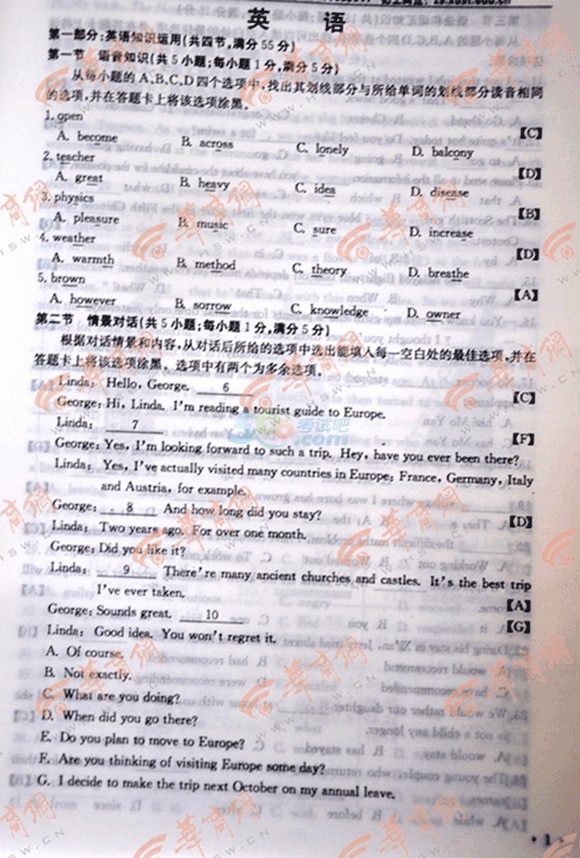 英 语
第一部分:英语知识运用(共四节,满分55分)
第一节 语音知识(共5小题;每小题1分,满分5分)
从每小题的A、B、C、D四个选项中,找出其划线部分与所给单词的划线部分读音相同
的选项,并在答题卡上将该选项涂黑。
1. open 【C】
A. become B. across C. lonely D. balcony
2. teacher 【D】
A. great B. heavy C. idea D. disease
3. physics 【B】
A. pleasure B. music C. sure D. increase
4. weather 【D】
A. warmth B. method C. theory D. breathe
5. brown 【A】
A. however B. sorrow C. knowledge D. owner
第二节 情景对话(共5小题;每小题1分,满分5分)
根据对话情景和内容,从对话后所给的选项中选出能填入每一空白处的最佳选项,并在
答题卡上将该选项涂黑。选项中有两个为多余选项。
Linda: Hello, George. 6 【C】
George: Hi, Linda. I'm reading a tourist guide to Europe.
Linda: 7 【F】
George: Yes, I'm looking forward to such a trip. Hey, have you ever been there?
Linda: Yes, I've actually visited many countries in Europe; France, Germany, Italy
and Austria, for example.
George: 8 And how long did you stay? 【D】
Linda: Two years ago. For over one month.
George: Did you like it?
Linda: 9 There're many ancient churches and castles. It's the best trip
I've ever taken. 【A】
George: Sounds great. 10 【G】
Linda: Good idea. You won't regret it.
A. Of course.
B. Not exactly.
C. What are you doing?
D. When did you go there?
E. Do you plan to move to Europe?
F. Are you thinking of visiting Europe some day?
G. I decide to make the trip next October on my annual leave.
• 1 •
华商网
HSW.CN
考试吧